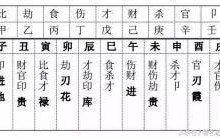 比 劫 食 伤 才 财 杀 官 卩
甲 乙 丙 丁 戊 己 庚 辛 壬
子 丑 寅 卯 辰 巳 午 未 申 酉 戌
财官印贵
比食才禄
劫刃花
才劫印库
食杀才
伤财进
财伤劫贵
杀才卩
官刃霞